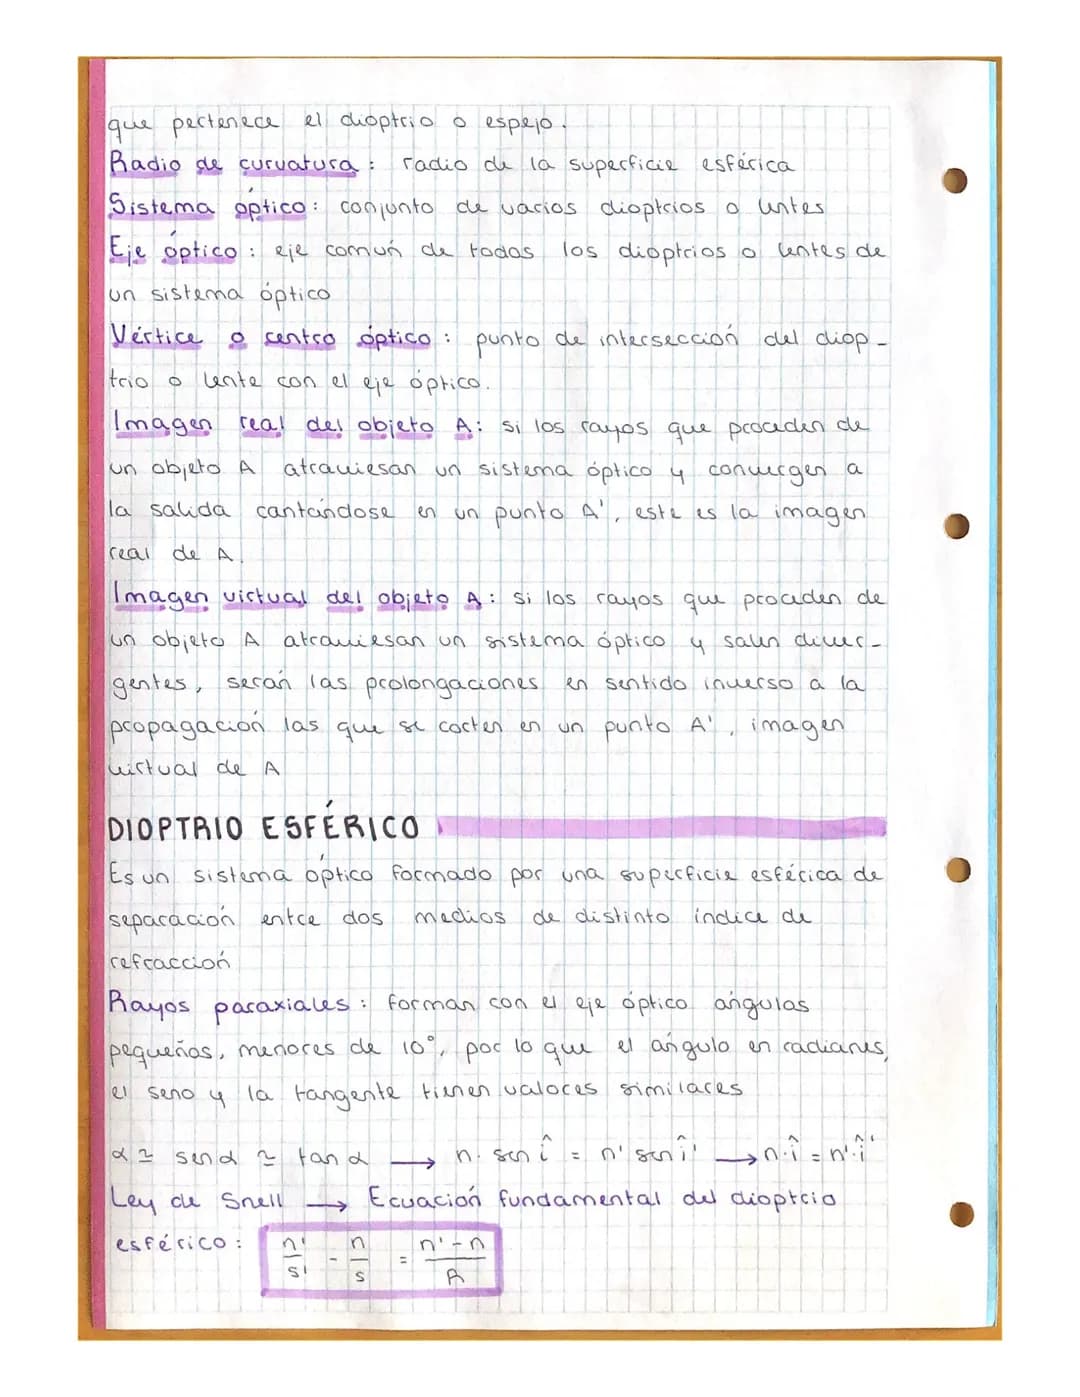 que pertenece el dioptrio o espejo.
Radio de curvatura: radio de la superficie esférica
Sistema óptico: conjunto de varios dioptrios o lentes
Eje óptico: eje común de todos los dioptrios o lentes de
un sistema óptico
Vértice o centro óptico: punto de intersección del diop-
trio o lente con el eje óptico.
Imagen real del objeto A: si los rayos que proceden de
un objeto A atraviesan un sistema óptico y convergen a
la salida cantándose en un punto A', este es la imagen
real de A.
Imagen virtual del objeto A: si los rayos que proceden de
un objeto A atraviesan un sistema óptico y salen diver-
gentes, serán las prolongaciones en sentido inverso a la
propagación las que se corten en un punto A', imagen
virtual de A
DIOPTRIO ESFÉRICO
Es un sistema óptico formado por una superficie esférica de
separación entre dos medios de distinto índice de
refracción
Rayos paraxiales: forman con el eje óptico ángulos
pequeños, menores de 10°, por lo que el ángulo en radianes,
el seno y la tangente tienen valores similares
α ≃ sen α ≃ tan α → n · sen î = n' sen î' → n · î = n' · î'
Ley de Snell → Ecuación fundamental del dioptrio
esférico: n'/s' - n/s = n' - n/R